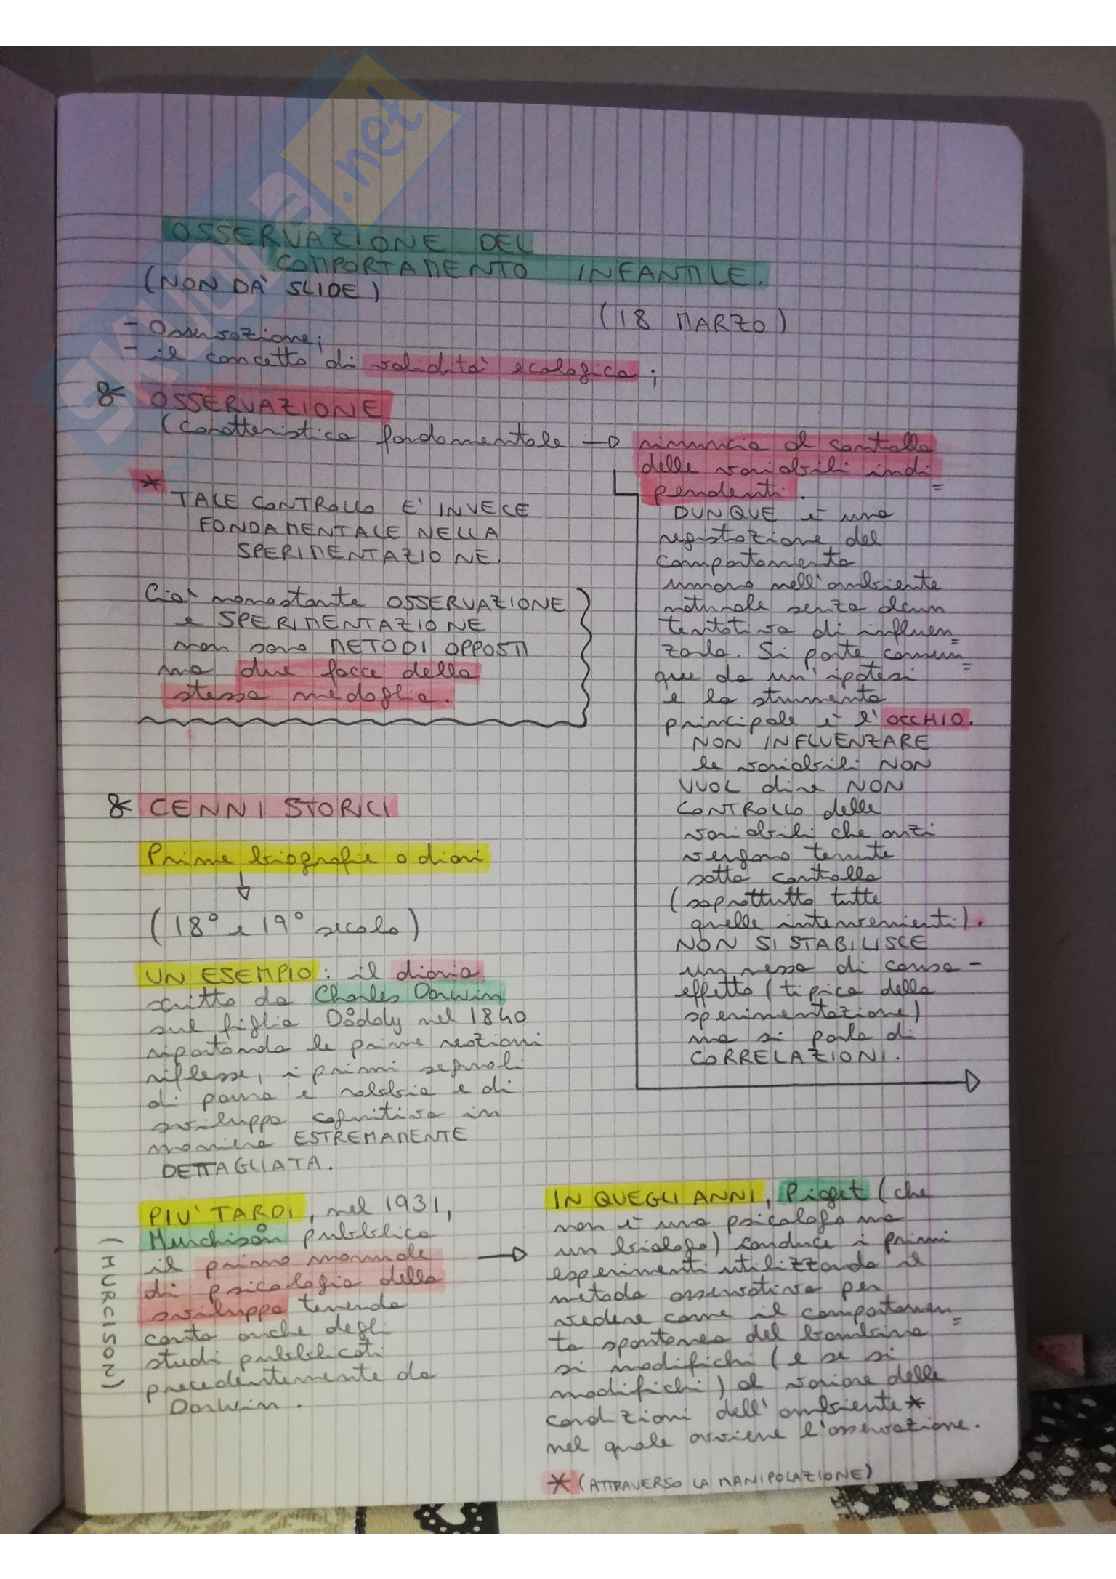 SKUOLA.net
OSSERVAZIONE DEL
COMPORTAMENTO INFANTILE.
(NON DA' SLIDE)
(18 MARZO)
- Osservazione;
- il concetto di validità ecologica;
OSSERVAZIONE
(caratteristica fondamentale → rinuncia al controllo
delle variabili indi=
pendenti.
* TALE CONTROLLO E' INVECE
FONDAMENTALE NELLA
SPERIMENTAZIONE.
Ciò nonostante OSSERVAZIONE
e SPERIMENTAZIONE
non sono METODI OPPOSTI
ma due facce della
stessa medaglia.
DUNQUE è una
registrazione del
comportamento
umano nell'ambiente
naturale senza alcun
tentativo di influen=
zarlo. Si parte comun=
que da un'ipotesi
e lo strumento
principale è l'OCCHIO.
NON INFLUENZARE
le variabili NON
VUOL dire NON
CONTROLLO delle
variabili che anzi
vengono tenute
sotto controllo
(soprattutto tutte
quelle intervenienti).
NON SI STABILISCE
un nesso di causa-
effetto (tipico della
sperimentazione)
ma si parla di
CORRELAZIONI.
CENNI STORICI
Prime biografie o diari
(18° e 19° secolo)
UN ESEMPIO: il diario
scritto da Charles Darwin
sul figlio Doddy nel 1840
riportando le prime reazioni
riflesse, i primi segnali
di paura e rabbia e di
sviluppo cognitivo in
maniera ESTREMAMENTE
DETTAGLIATA.
PIU' TARDI, nel 1931,
Murchison pubblica
il primo manuale
di psicologia dello
sviluppo tenendo
conto anche degli
studi pubblicati
precedentemente da
Darwin.
(MURCISON)
→ IN QUEGLI ANNI, Piaget (che
non è uno psicologo ma
un biologo) conduce i primi
esperimenti utilizzando il
metodo osservativo per
vedere come il comportamen=
to spontaneo del bambino
si modifichi (e se si
modifichi) al variare delle
condizioni dell'ambiente *
nel quale avviene l'osservazione.
* (ATTRAVERSO LA MANIPOLAZIONE)